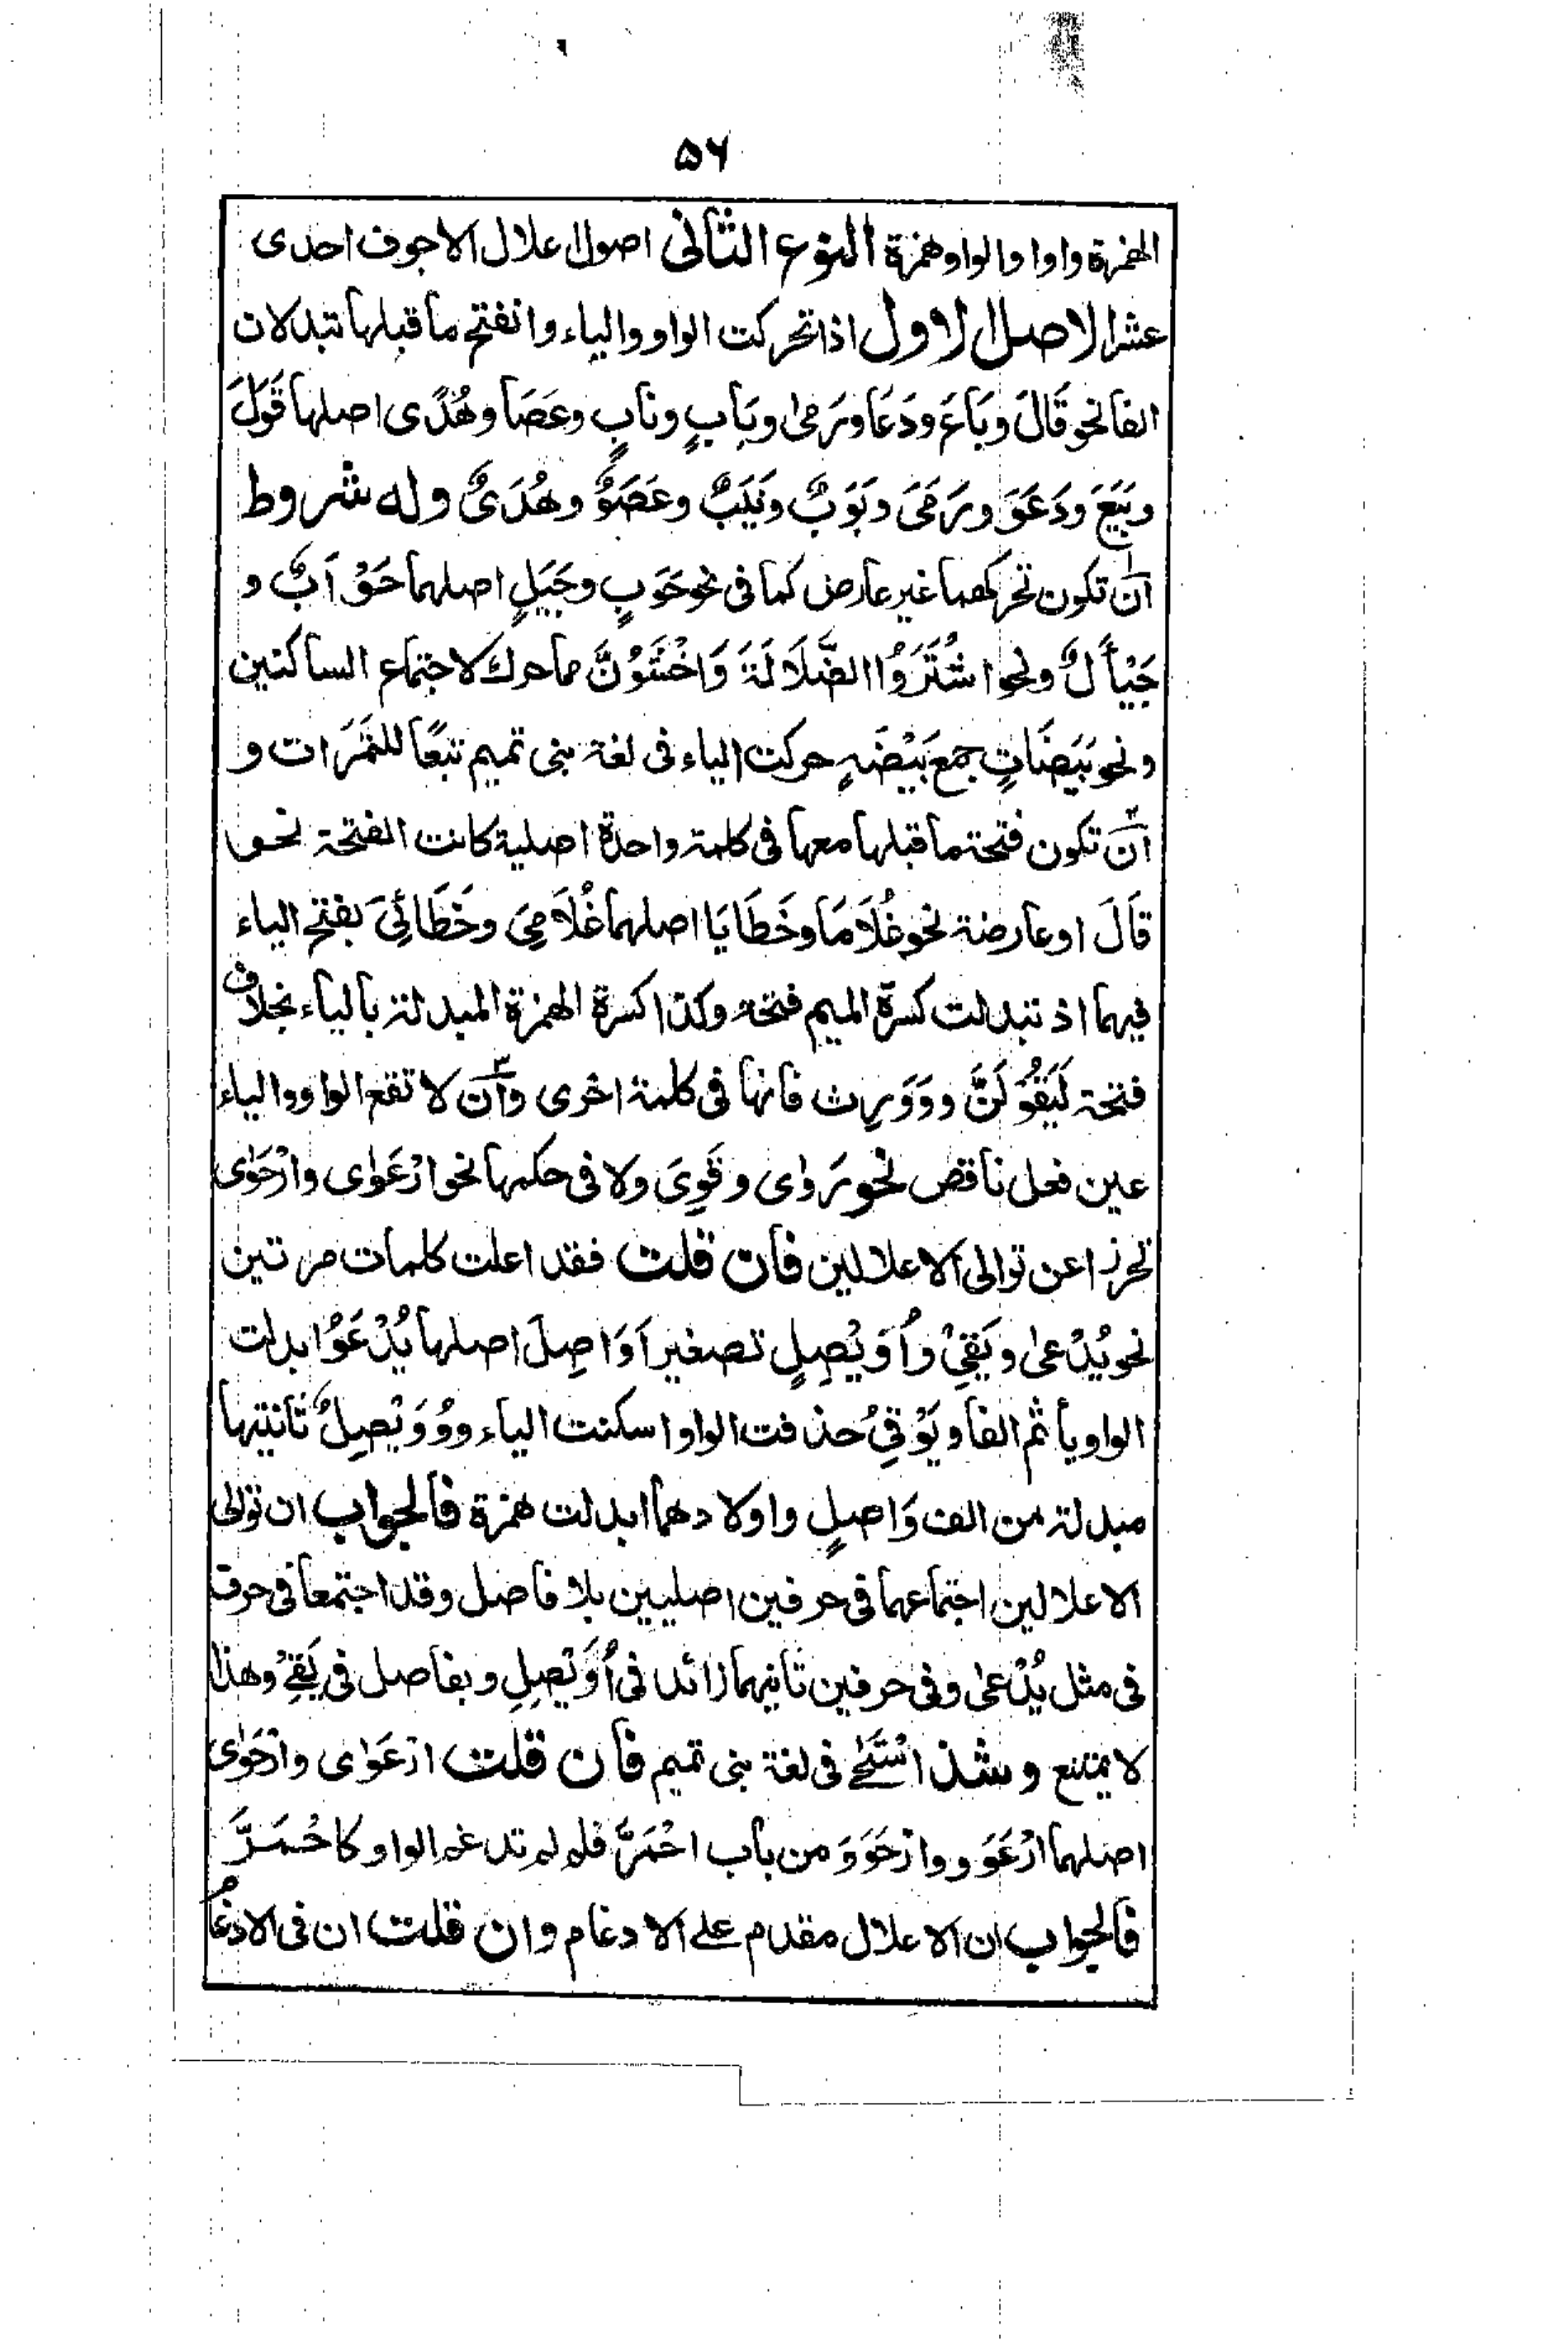 ۵۶
الهمزة واوا والواو همزة النوع الثانى اصول اعلال الاجوف احدى
عشر الاصل الاول اذا تحركت الواو والياء وانفتح ما قبلها تبدلان
الفا نحو قَالَ وبَاعَ ودَعَا ورَمىٰ وبَابٍ ونَابٍ وعَصًا وهُدًى اصلها قَوَلَ
وبَيَعَ ودَعَوَ ورَمَىَ وبَوَبٌ ونَيَبٌ وعَصَوٌ وهُدَىٌ وله شروط
اَنْ تكون تحركهما غير عارض كما فى نحو حَوَبٍ وجَيَلٍ اصلهما حَوْأَبٌ و
جَيْأَلٌ ونحو اشْتَرَوُا الضَّلَالَةَ وَاخْشَوُنَّ مما حرك لاجتماع الساكنين
ونحو بَيَضَاتٍ جمع بَيْضَةٍ حركت الياء فى لغة بنى تميم تبعًا للتَمَرَات و
اَنْ تكون فتحة ما قبلها معها فى كلمة واحدة اصلية كانت الفتحة نحو
قَالَ او عارضة نحو غُلَامَا وخَطَايَا اصلهما غُلَامِىَ وخَطَائِىَ بفتح الياء
فيهما اذ تبدلت كسرة الميم فتحة وكذا كسرة الهمزة المبدلة بالياء بخلاف
فتحة لَيَقُوْلَنَّ ووَوَرِث فانها فى كلمة اخرى واَنْ لا تقع الواو والياء
عين فعل ناقص نحو رَوٰى وقَوِىَ ولا فى حكمها نحو ارْعَوٰى وارْحَوٰى
تحرزا عن توالى الاعلالين فان قلت فقد اعلت كلمات مرتين
نحو يُدْعىٰ ويَقِىْ واُوَيْصِلٍ تصغير اَوَاصِلَ اصلها يُدْعَوُ ابدلت
الواو يا ثم الفا ويَوْقِىُ حذفت الواو اسكنت الياء ووُوَيْصِلٌ ثانيتها
مبدلة من الف وَاصِلٍ واولادهما ابدلت همزة فالجواب ان توالى
الاعلالين اجتماعهما فى حرفين اصليين بلا فاصل وقد اجتمعا فى حرف
فى مثل يُدْعىٰ وفى حرفين ثانيهما زائد فى اُوَيْصِلِ وبفاصل فى يَقِىْ وهذا
لا يمتنع وشذ اسْتَحٰى فى لغة بنى تميم فان قلت ارعَوٰى وارْحَوٰى
اصلهما ارْعَوَوَ وارْحَوَوَ من باب احْمَرَّ فلم لم تدغم الواو كاحْمَرَّ
فالجواب ان الاعلال مقدم على الادغام وان قلت ان فى الادغام